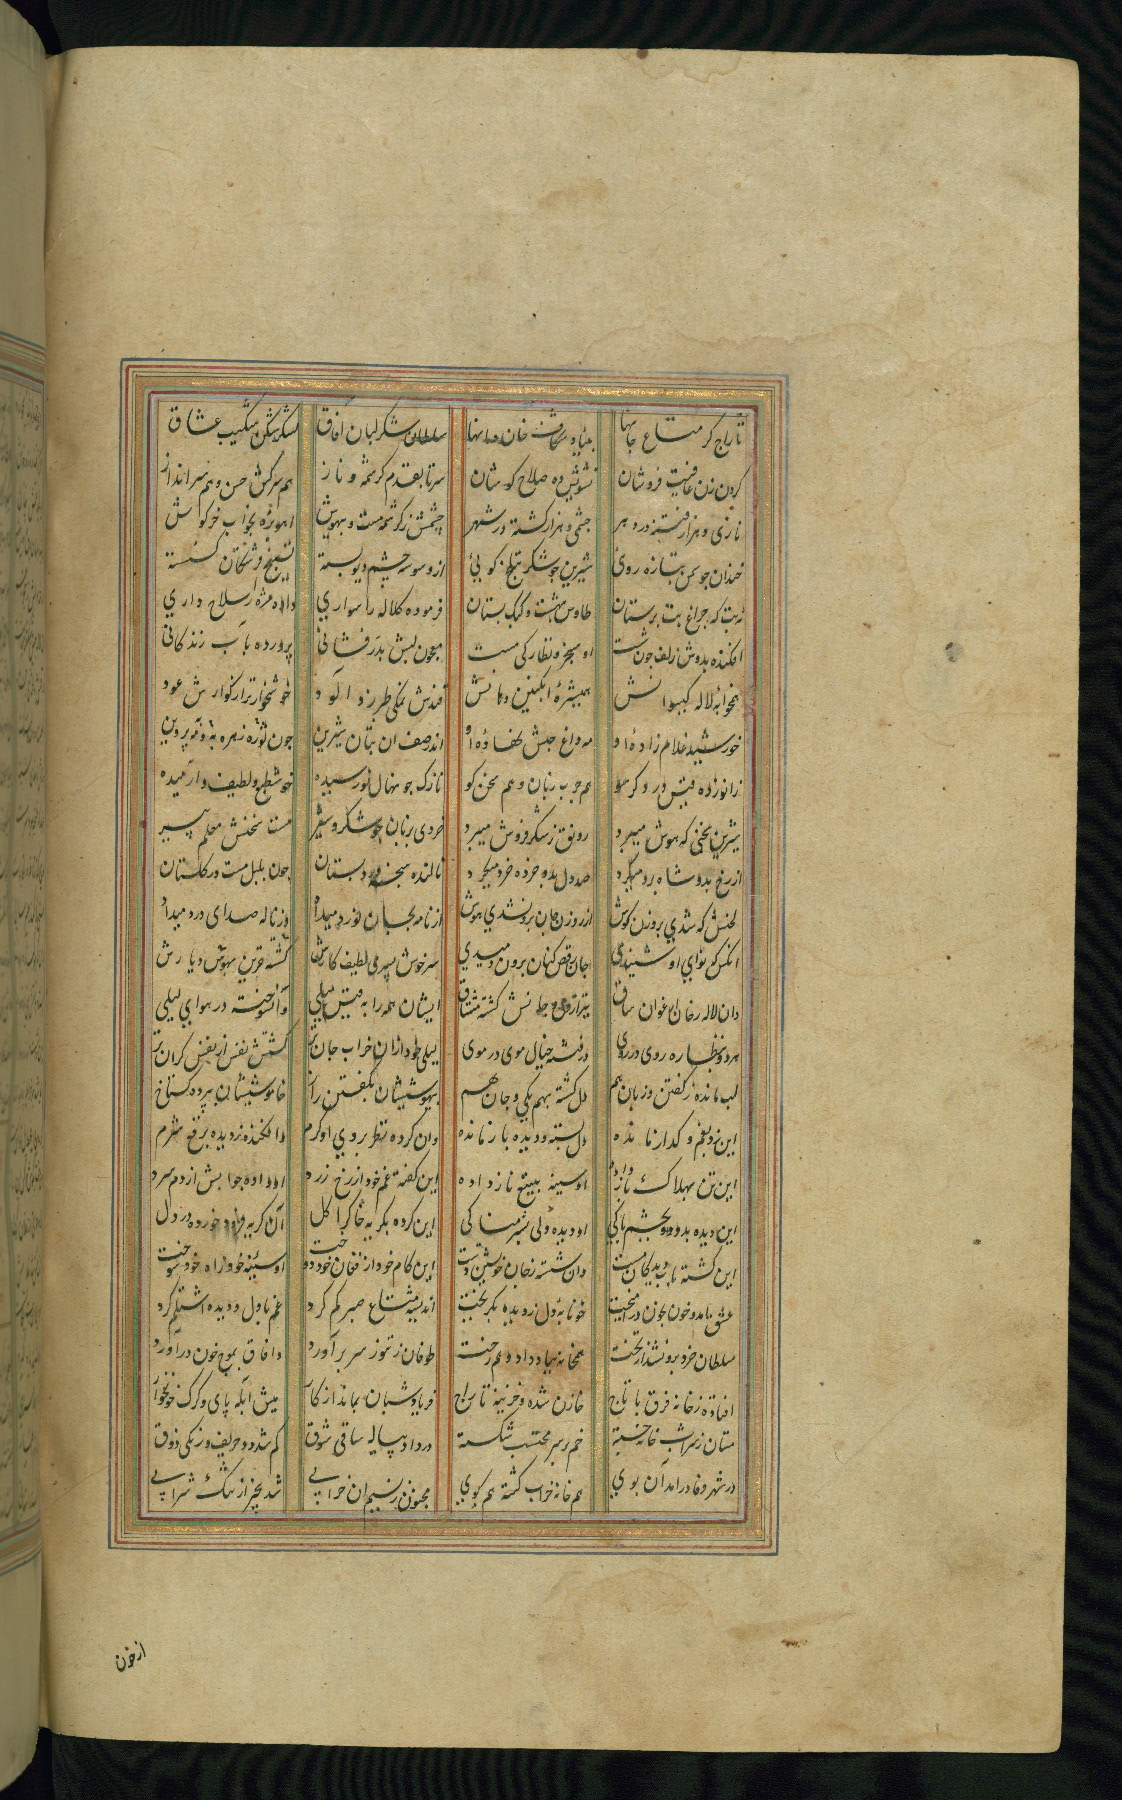 تاراج گر متاع جانها بنیاد شکاف خان و مانها سلطان شکر لبان آفاق لشکر شکن شکیب عشاق
گردن زن عافیت فروشان تشویش ده صلاح کوشان سرتابقدم کرشمه و ناز هم سرکش حسن و هم سرانداز
نازی و هزار فتنه در دهر چشمی و هزار کشته در شهر چشمش ز کرشمه مست و بیهوش آهو بره بخواب خرگوش
خندان چو سمن بتازه روئی شیرین چو شکر بتلخ گوئی از وسوسه چشم دیو بسته تسبیح فرشتگان گسسته
نه بت که چراغ بت پرستان طاوس بهشت و کبک بستان فرموده کلاله را سواری داده مژه را سلاح داری
افکنده بدوش زلف چون شست او بیخبر و نظارگی مست معجون لبش بدرفشانی پرورده بآب زندگانی
همخوابه لاله گیسوانش همشیره انگبین دهانش قندش نمکی طبرزد آلود خوشخوارتر از گوارش عود
خورشید غلام زاده او مه داغ حبش نهاده او اندر صف آن بتان شیرین چون زهره بثور و مه بپروین
زانو زده قیس در دگر سو هم چرب زبان و هم سخن گو نازک چو نهال نورسیده خوش طبع و لطیف و آرمیده
شیرین سخنی که هوش میبرد رونق ز شکر فروش میبرد خردی بزبان چو شکر و شیر مست سخنش معلم پیر
از رخ بدو شاه برد میکرد صد دل بدو خرده خرد میکرد نالنده دبستان چون بلبل مست در گلستان
لحنش که شدی بروزن گوش از روزن جان برون شدی هوش از نامه بجان نورد میداد وز ناله صدای درد میداد
آنکس که نوای او شنیدی جان رقص کنان برون دویدی سرخوش لطیف کارش گشته قرین بهوش و یارش
وان لاله رخان ارغوان ساق بیقرار و جانش گشته مشتاق ایشان همه را به قیس میلی و آنسوخته در هوای لیلی
هر دو بنظاره روی در روی در رفته خیال موی در موی لیلی خود ازان خراب جان تر گشتش نفس از نفس گران تر
لب مانده ز گفتن و زبان هم دل گشته بهم یکی و جان هم بیهوشیشان بگفتن راز خاموشیشان پرده
این نزد بغم و گداز مانده دل بسته و دیده باز مانده وان کرده نظر بروی او گرم وافکنده ز دیده برقع شرم
این تن بهلاک باز داده او سینه بتیغ ناز داده این گفته غم خود از رخ زرد او داده جوابش از دم سرد
این دیده بدو بچشم پاکی او دیده ولی بشرمناکی این کرده بگریه خاک را گل آن گریه خورده در دل
این گشته بدیدگان مست وان شسته ز جان خویشتن دست این کام خود از فغان خود دوخت او سینه خود ز آه خود سوخت
عشق آمد و خون بخون درآمیخت خونابه دل ز دیده بگریخت اندیشه متاع صبر گم کرد غم با دل و دیده اشتلم کرد
سلطان خرد برون شد از تخت هم خانه بباد داد و هم رخت طوفان ز تنور سر برآورد وافاق بموج خون درآورد
افتاده ز خانه فرق با تاج خازن شده و خزینه تاراج فریاد شبان بماند از کار میش آبله پای و گرگ خونخوار
مستان ز شراب خانه خسته خم بر سر محتسب شکسته در داد پیاله ساقی شوق گم شد دو حریف و زیکی ذوق
در شهر وفا درآمد آن بوی هم خانه خراب گشت هم کوی مجنون ز نسیم آن خرابی شد بیخبر از تنک شرابی
از خون